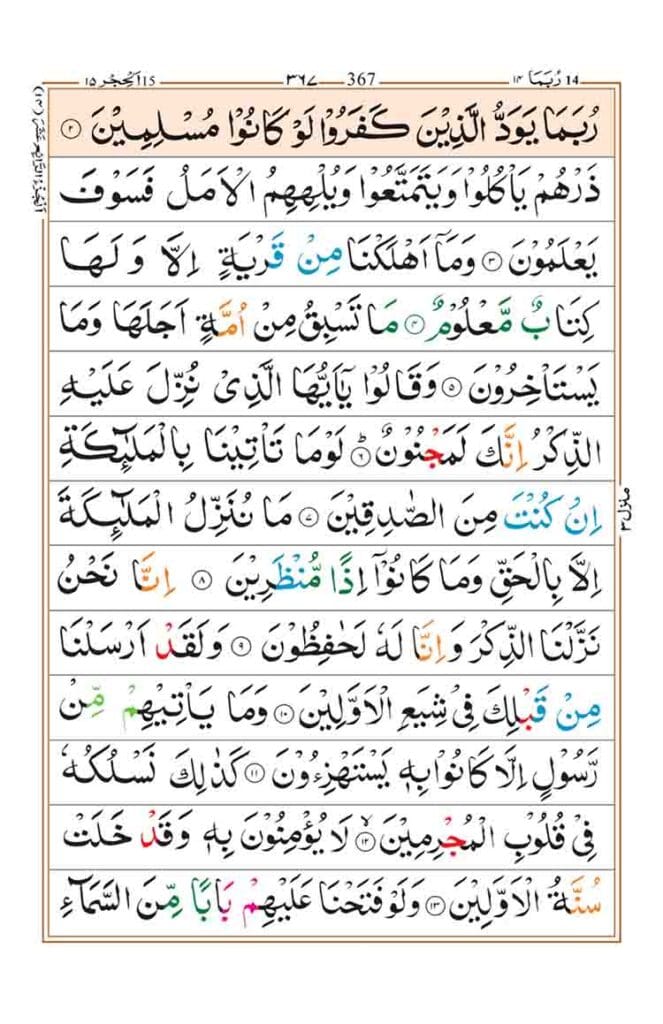 14 رُبَمَا ١٤ 367 ٣٦٧ 15 اَلْحِجْر ١٥
رُبَمَا يَوَدُّ الَّذِيْنَ كَفَرُوْا لَوْ كَانُوْا مُسْلِمِيْنَ ۝٢
ذَرْهُمْ يَاْكُلُوْا وَيَتَمَتَّعُوْا وَيُلْهِهِمُ الْاَمَلُ فَسَوْفَ
يَعْلَمُوْنَ ۝٣ وَمَاۤ اَهْلَكْنَا مِنْ قَرْيَةٍ اِلَّا وَلَهَا
كِتَابٌ مَّعْلُوْمٌ ۝٤ مَا تَسْبِقُ مِنْ اُمَّةٍ اَجَلَهَا وَمَا
يَسْتَاْخِرُوْنَ ۝٥ وَقَالُوْا يٰۤاَيُّهَا الَّذِيْ نُزِّلَ عَلَيْهِ
الذِّكْرُ اِنَّكَ لَمَجْنُوْنٌ ؕ۝٦ لَوْمَا تَاْتِيْنَا بِالْمَلٰٓئِكَةِ
اِنْ كُنْتَ مِنَ الصّٰدِقِيْنَ ۝٧ مَا نُنَزِّلُ الْمَلٰٓئِكَةَ
اِلَّا بِالْحَقِّ وَمَا كَانُوْۤا اِذًا مُّنْظَرِيْنَ ۝٨ اِنَّا نَحْنُ
نَزَّلْنَا الذِّكْرَ وَاِنَّا لَهٗ لَحٰفِظُوْنَ ۝٩ وَلَقَدْ اَرْسَلْنَا
مِنْ قَبْلِكَ فِيْ شِيَعِ الْاَوَّلِيْنَ ۝١٠ وَمَا يَاْتِيْهِمْ مِّنْ
رَّسُوْلٍ اِلَّا كَانُوْا بِهٖ يَسْتَهْزِءُوْنَ ۝١١ كَذٰلِكَ نَسْلُكُهٗ
فِيْ قُلُوْبِ الْمُجْرِمِيْنَ ۙ۝١٢ لَا يُؤْمِنُوْنَ بِهٖ وَقَدْ خَلَتْ
سُنَّةُ الْاَوَّلِيْنَ ۝١٣ وَلَوْ فَتَحْنَا عَلَيْهِمْ بَابًا مِّنَ السَّمَآءِ
اَلْجُزْءُ الرَّابِعُ عَشَرَ (١٤)
منزل ٣